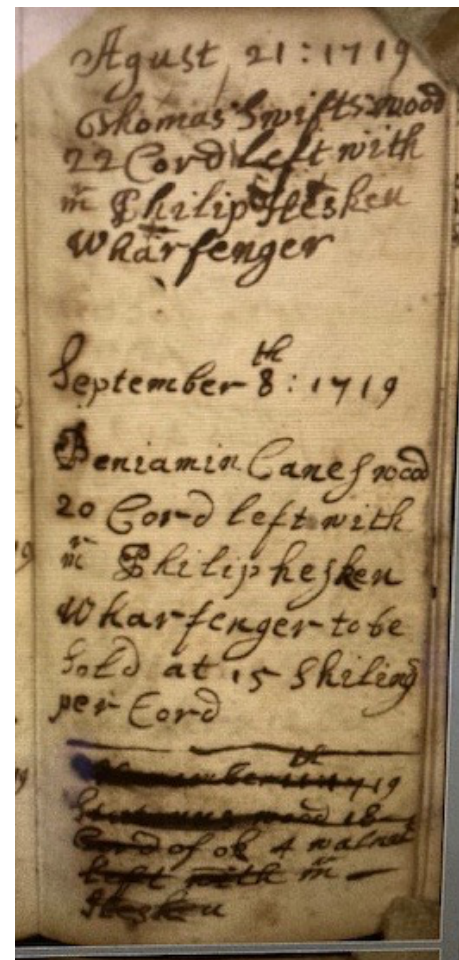 Agust 21 : 1719
Thomas Swifts wood
22 Cord left with
mr Philip Hesken
Wharfenger
September 8th : 1719
Beniamin Canes wood
20 Cord left with
mr Philip hesken
Wharfenger to be
Sold at 15 Shiling
per Cord
19
wood 18
Cord of ok 4 walnut
left with mr
Hesken